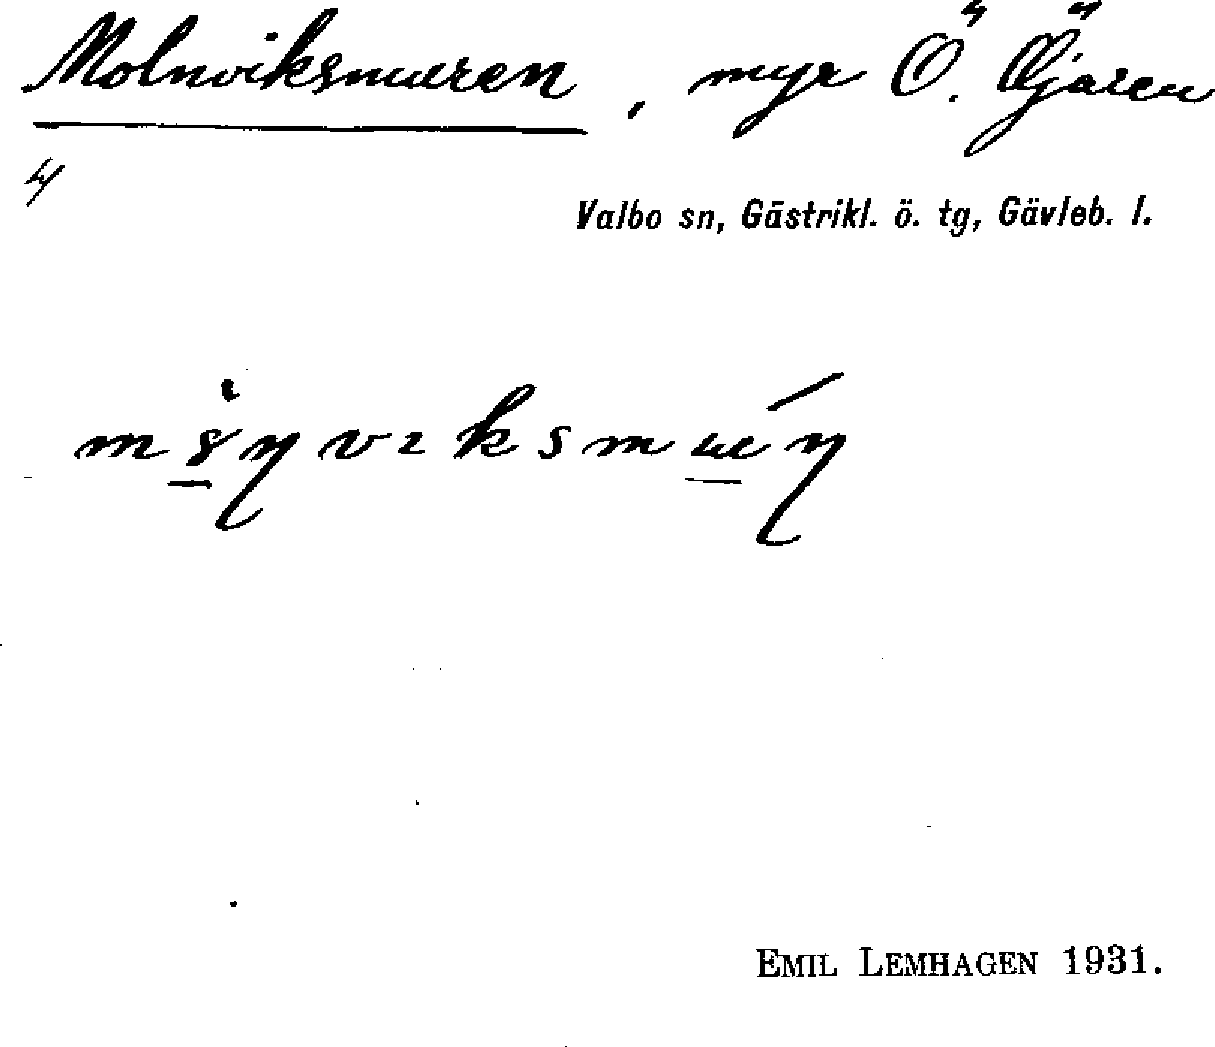 Molnviksmuren, myr Ö. Öjaren
Valbo sn, Gästrikl. ö. tg, Gävleb. l.
EMIL LEMHAGEN 1931.